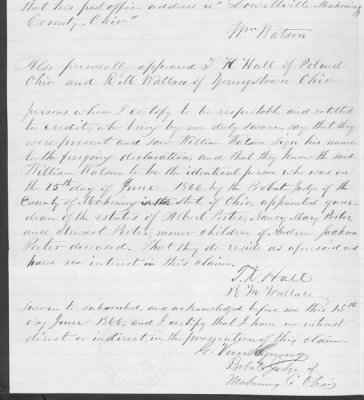 that his post office address is "Lowellville Mahoning
County, Ohio"
Wm Watson
Also personally appeared T. K. Hall of Poland
Ohio and R. M. Wallace of Youngstown Ohio
persons whom I certify to be respectable and entitled
to credit, who being by me duly sworn, say that they
were present and saw William Watson sign his name
to the foregoing declaration, and that they know the said
William Watson to be the identical person who was on
the 15th day of June 1866, by the Probate Judge of the
County of Mahoning in the State of Ohio, appointed guar-
dean of the estates of Albert Porter, Nancy Mary Porter,
and Stewart Porter, minor children of Andrew Jackson
Porter deceased. That they do reside as aforesaid and
have no interest in this claim.
T. K. Hall
R. M. Wallace
Sworn to, subscribed, and acknowledged before me this 15th
day June 1866, and I certify that I have no interest
direct or indirect in the prosecution of this claim.
Probate Judge of
Mahoning C. Ohio